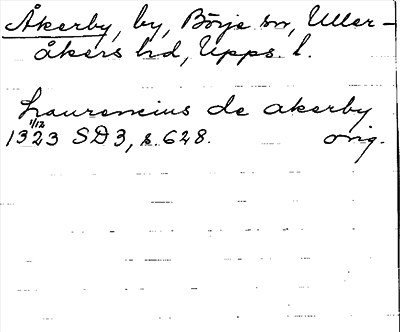 Åkerby, by, Börje sn, Uller-
åkers hd, Upps. l.
Laurencius de akerby
1323 1/12 SD3, s. 628. orig.